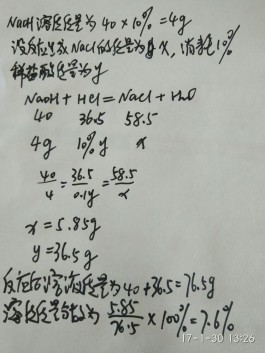 NaOH溶质质量为40×10%=4g
设反应生成NaCl的质量为x,消耗10%
稀盐酸质量为y
NaOH+HCl=NaCl+H₂O
40 36.5 58.5
4g 10%y x
40/4=36.5/0.1y=58.5/x
x=5.85g
y=36.5g
反应后溶液质量为40+36.5=76.5g
溶质质量分数为5.85/76.5×100%=7.6%
17-1-30 13:26